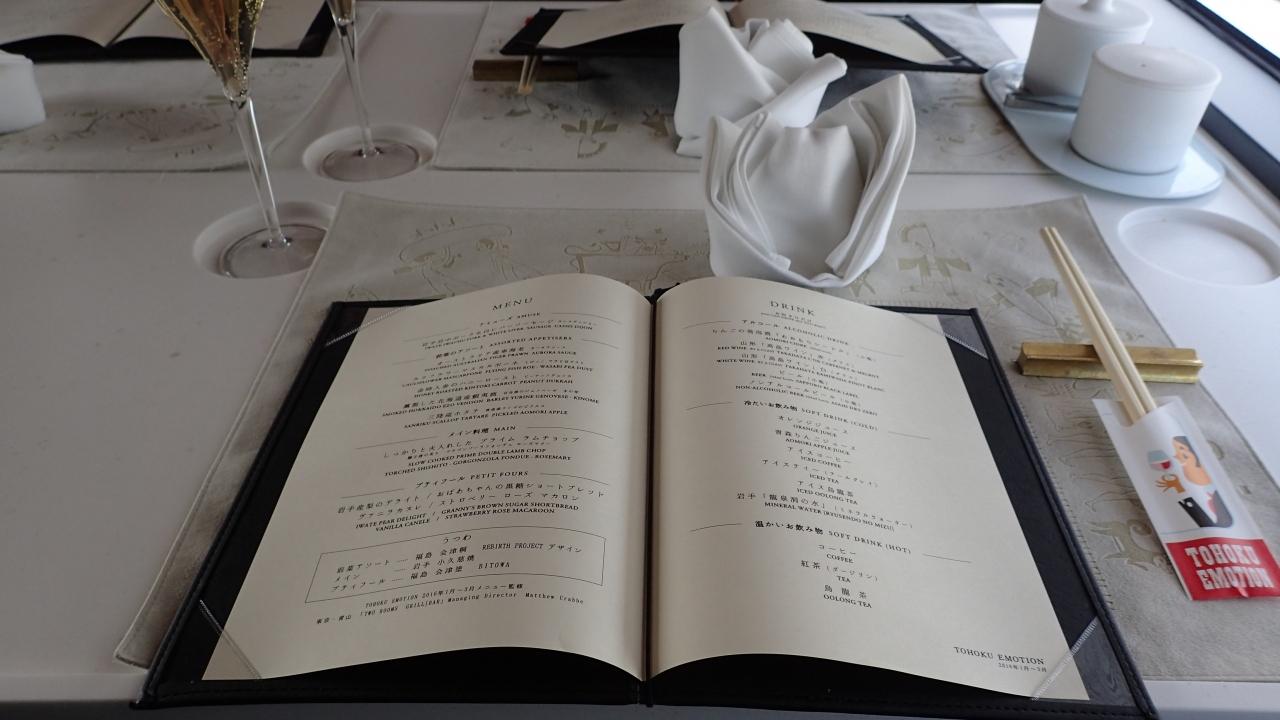 MENU
アミューズ AMUSE
IWATE PRODUCE PORK & WHITE LIVER SAUSAGE
前菜のアソート ASSORTED APPETISERS
POACHED AUSTRALIAN TIGER PRAWN AURORA SAUCE
CAULIFLOWER MASCARPONE FLYING FISH ROE・WASABI PEA DUST
HONEY ROASTED KINTOKI CARROT PEANUT DUKKAH
SMOKED HOKKAIDO EZO VENISON BARLEY YURINE GENOVESE・KINOME
三陸産ホタテ
SANRIKU SCALLOP TARTARE PICKLED AOMORI APPLE
メイン料理 MAIN
しっかりと火入れした プライム ラムチョップ
SLOW COOKED PRIME DOUBLE LAMB CHOP
TORCHED SHISHITO・GORGONZOLA FONDUE・ROSEMARY
プティフール PETIT FOURS
岩手産梨のデライト / おばあちゃんの黒糖ショートブレッド
ヴァニラカヌレ / ストロベリー ローズ マカロン
IWATE PEAR DELIGHT / GRANNY'S BROWN SUGAR SHORTBREAD
VANILLA CANELE / STRAWBERRY ROSE MACAROON
うつわ
前菜アソート ― 福島 会津桐 REBIRTH PROJECT デザイン
メイン ― 岩手 小久慈焼
プティフール ― 福島 会津塗 BITOWA
TOHOKU EMOTION 2016年1月～3月メニュー監修
東京・青山 「TWO ROOMS GRILL|BAR」 Managing Director Matthew Crabbe
DRINK
アルコール ALCOHOLIC DRINK
AOMORI CIDRE
RED WINE
WHITE WINE
ビール
BEER SAPPORO BLACK LABEL
ノンアルコールビール
NON-ALCOHOLIC BEER ASAHI DRY ZERO
冷たいお飲み物 SOFT DRINK (COLD)
オレンジジュース
ORANGE JUICE
青森りんごジュース
AOMORI APPLE JUICE
アイスコーヒー
ICED COFFEE
アイスティー
ICED TEA
アイス烏龍茶
ICED OOLONG TEA
岩手「龍泉洞の水」（ミネラルウォーター）
MINERAL WATER (RYUSENDO NO MIZU)
温かいお飲み物 SOFT DRINK (HOT)
コーヒー
COFFEE
紅茶（ダージリン）
TEA
烏龍茶
OOLONG TEA
TOHOKU EMOTION
2016年1月～3月
TOHOKU
EMOTION